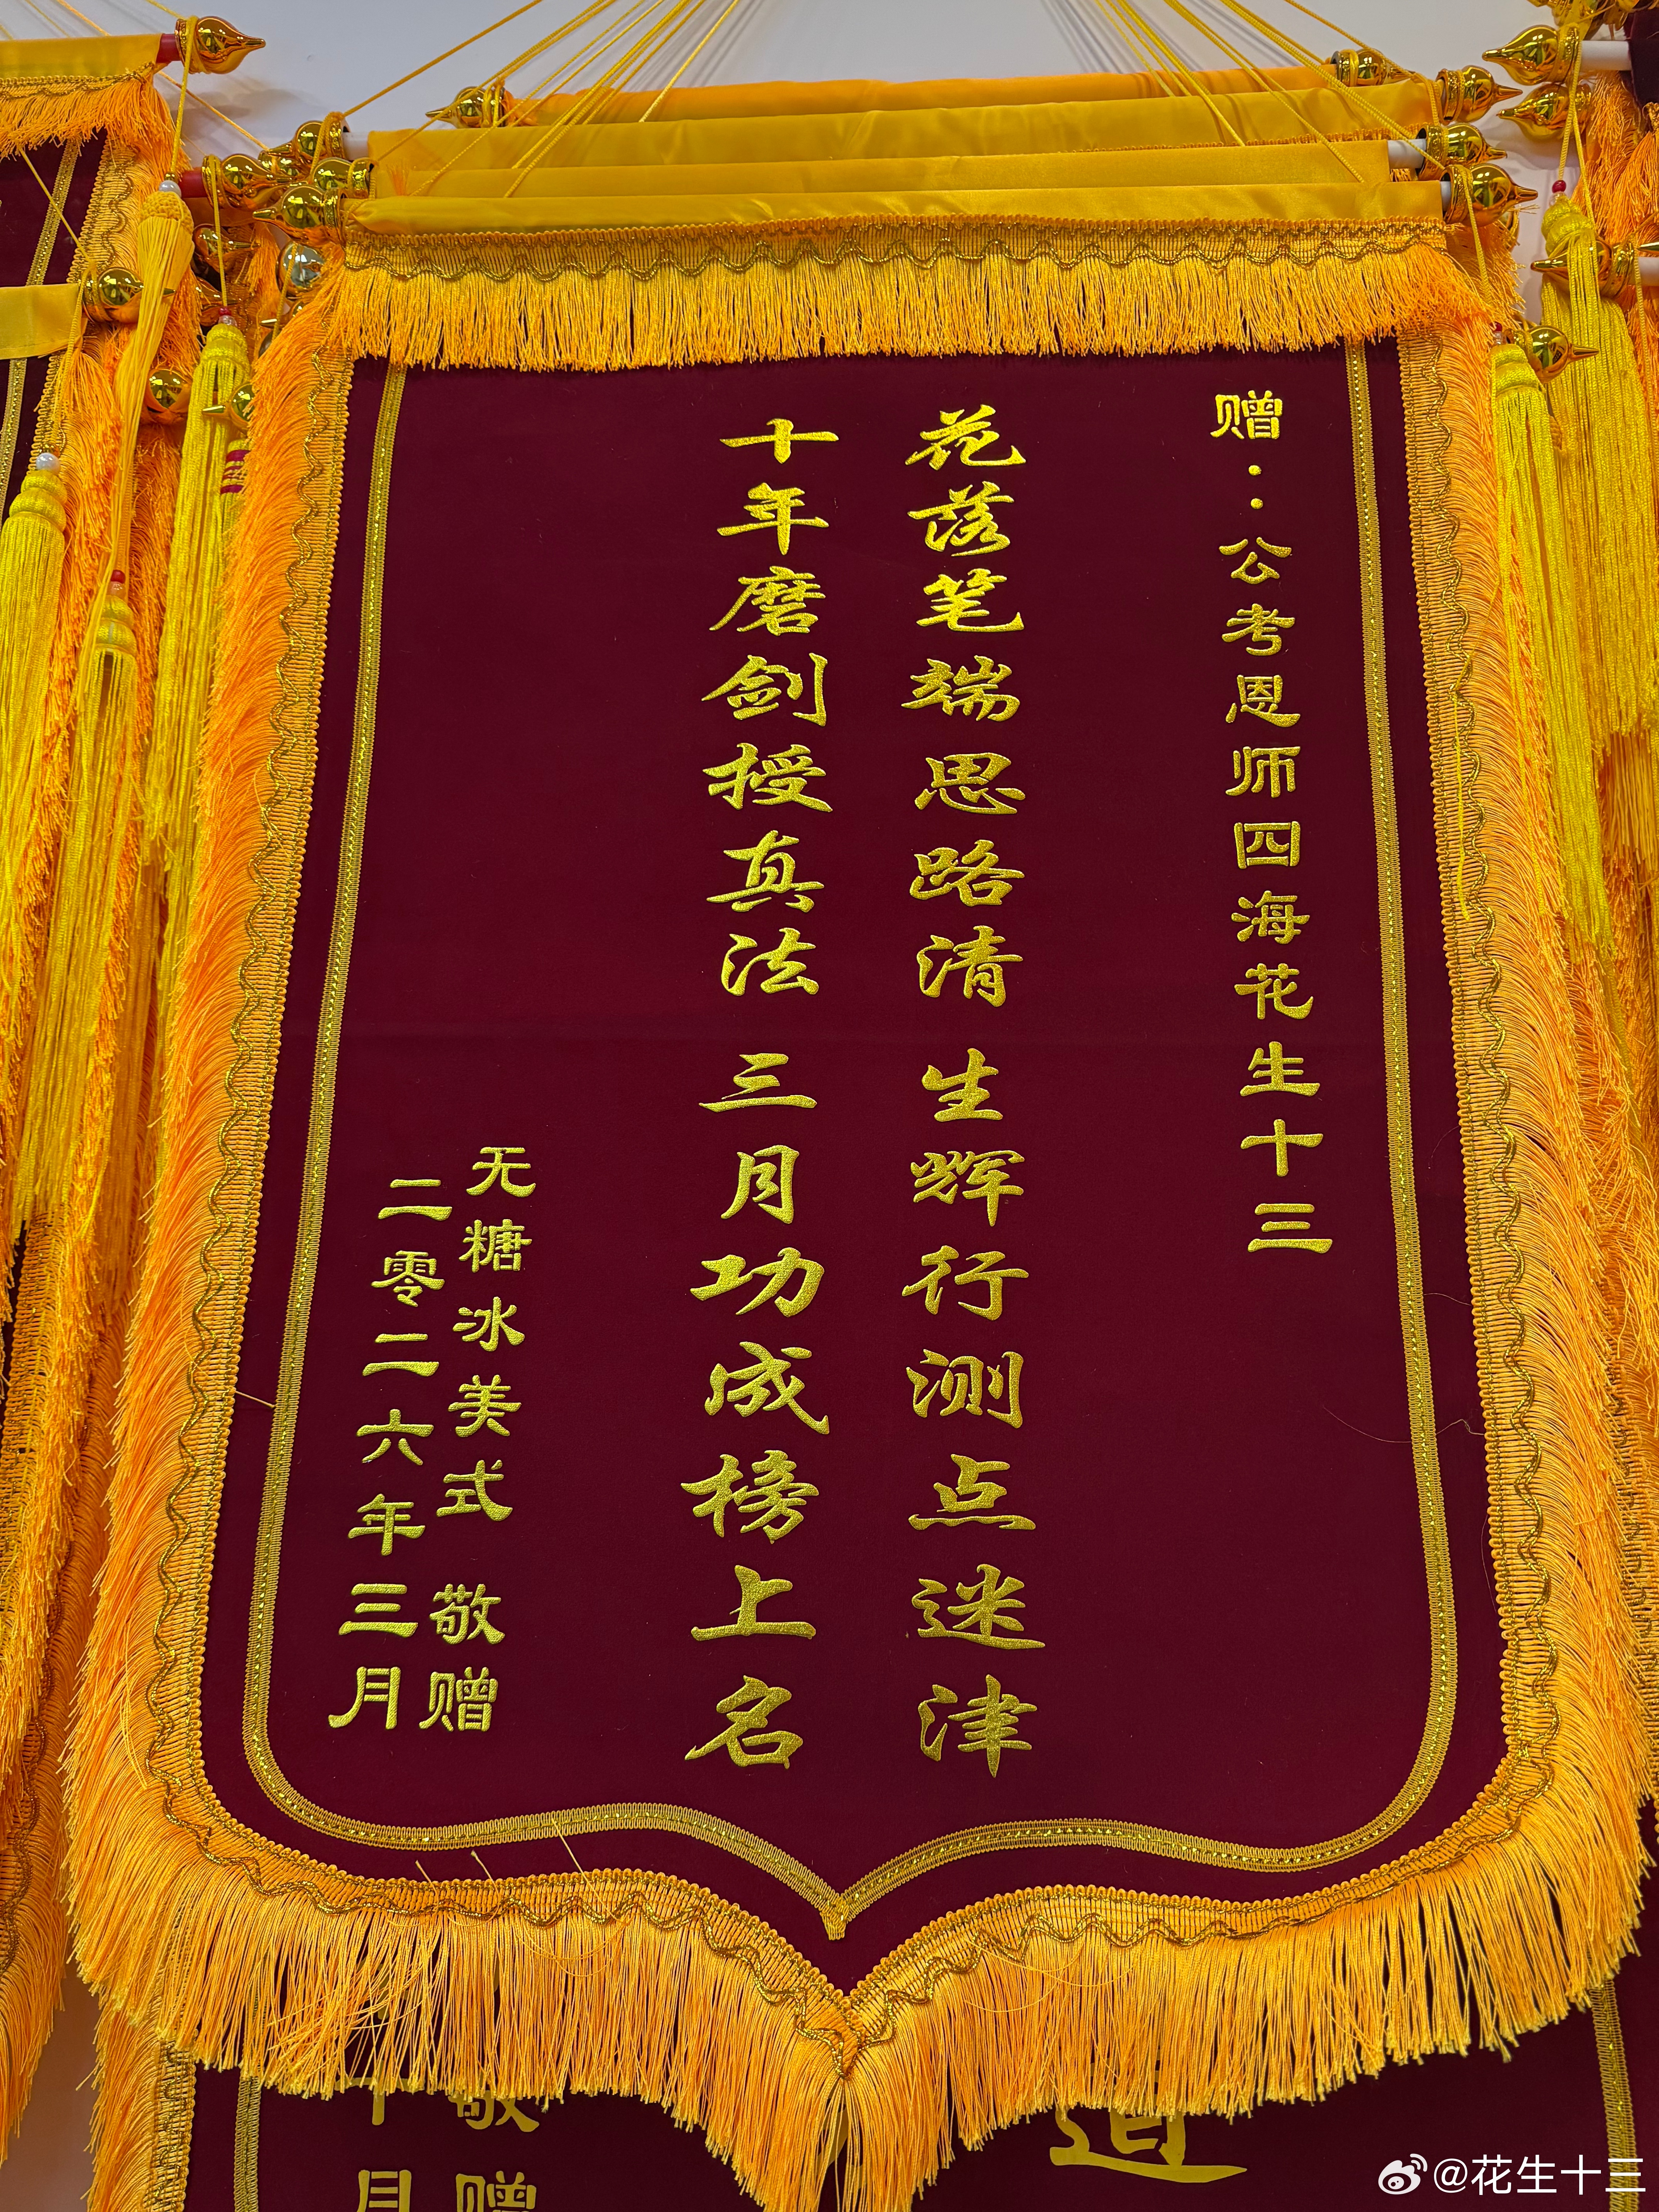 赠：公考恩师四海花生十三
花落笔端思路清 生辉行测点迷津
十年磨剑授真法 三月功成榜上名
无糖冰美式 敬赠
二零二六年三月
敬赠
月
道
@花生十三